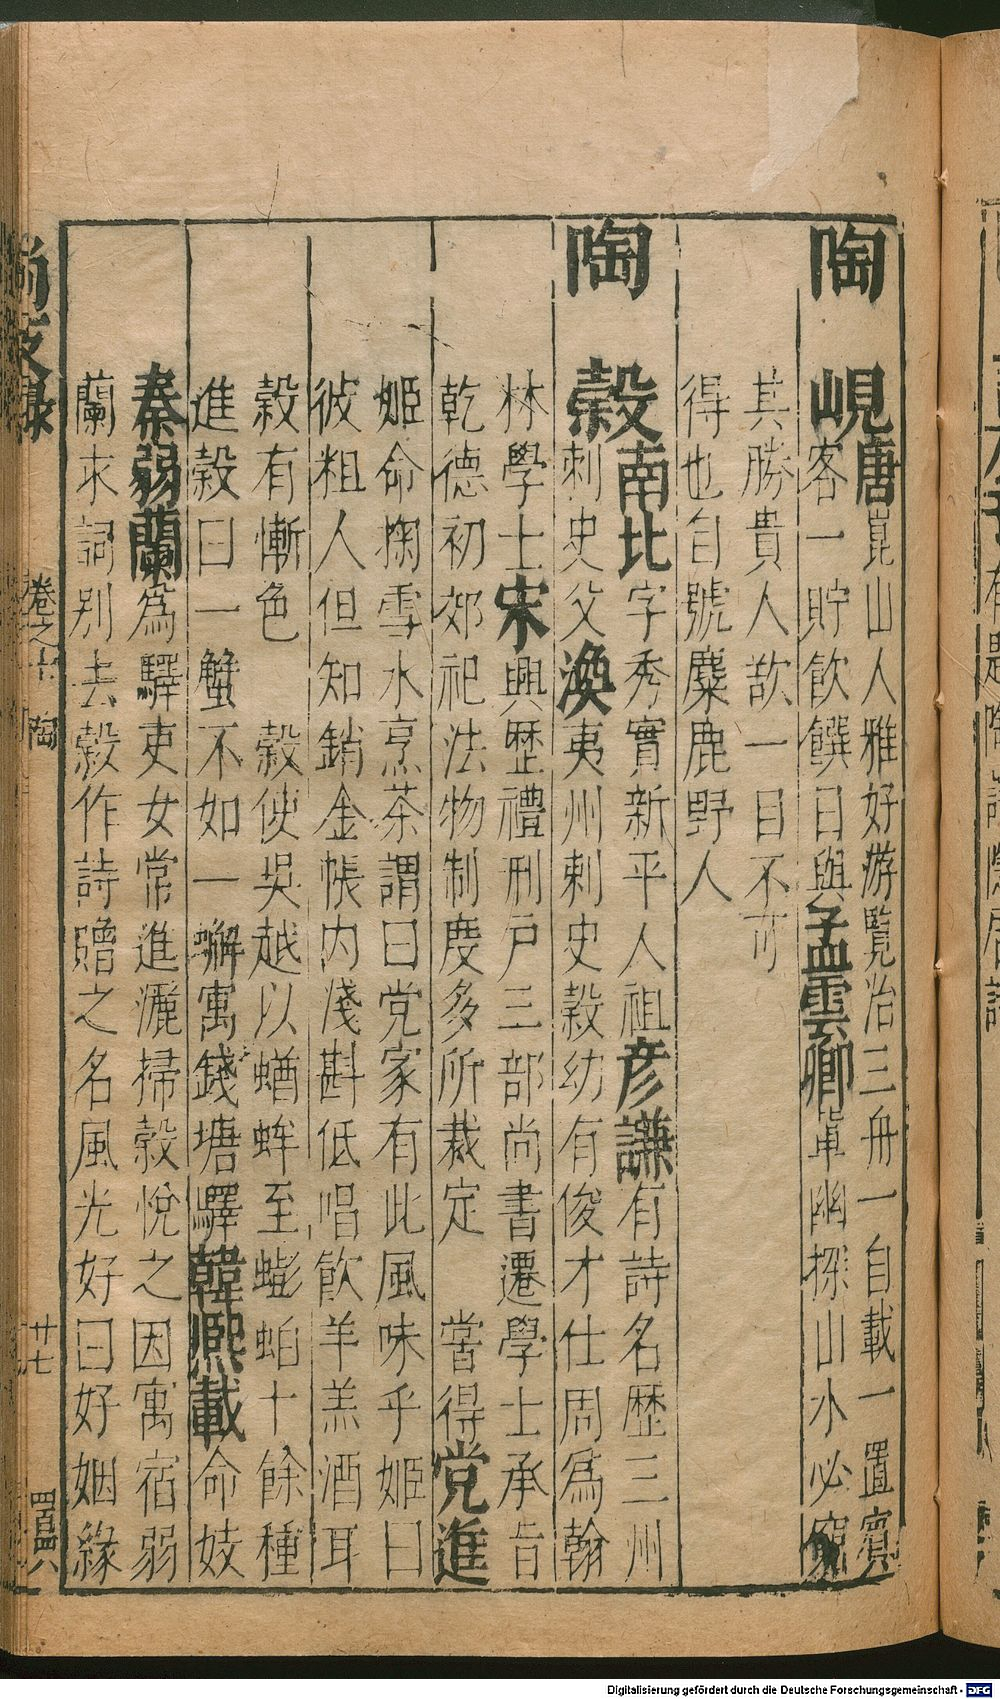 陶峴唐崑山人雅好游覽治三舟一自載一置賓
客一貯飲饌日與孟雲卿單幽探山水必窮
其勝貴人款一目不可
得也自號麋鹿野人
陶穀南北字秀實新平人祖彦謙有詩名歷三州
刺史父渙夷州刺史穀幼有俊才仕周爲翰
林學士宋興歷禮刑戸三部尚書遷學士承旨
乾德初郊祀法物制度多所裁定　嘗得党進
姬命掬雪水烹茶謂曰党家有此風味乎姬曰
彼粗人但知銷金帳内淺斟低唱飲羊羔酒耳
穀有慚色　穀使吳越以蝤蛑至蟛蚏十餘種
進穀曰一蟹不如一蠏寓錢塘驛韓熈載命妓
秦弱蘭爲驛吏女常進灑掃穀悅之因寓宿弱
蘭求詞别去穀作詩贈之名風光好曰好姻緣
尚友錄　卷之十　陶　廿七
Digitalisierung gefördert durch die Deutsche Forschungsgemeinschaft - DFG